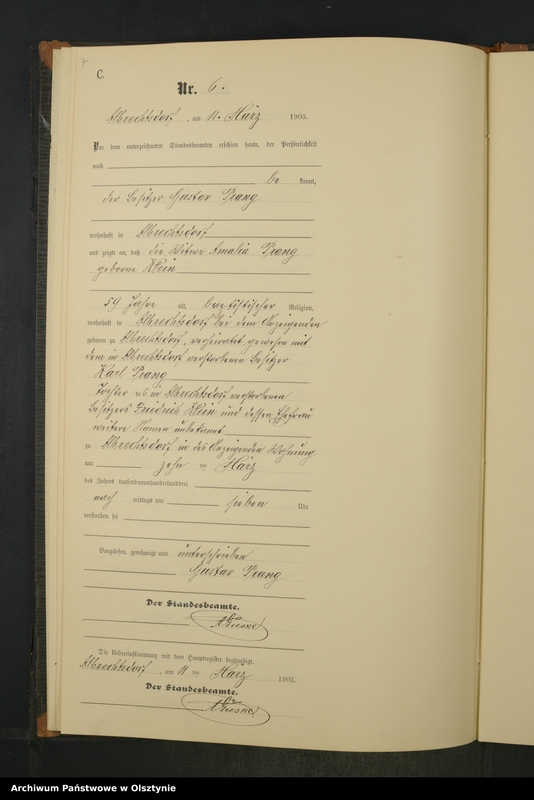 C.
Nr. 6.
Albrechtsdorf, am 11. März 1903.
Vor dem unterzeichneten Standesbeamten erschien heute, der Persönlichkeit
nach
be kannt,
der Besitzer Gustav Prang
wohnhaft in Albrechtsdorf
und zeigte an, daß die Witwe Amalia Prang
geborene Klein
59 Jahre alt, baptistischer Religion,
wohnhaft in Albrechtsdorf bei dem Anzeigenden
geboren zu Albrechtsdorf, verheiratet gewesen mit
dem in Albrechtsdorf verstorbenen Besitzer
Karl Prang
Tochter des in Albrechtsdorf verstorbenen
Besitzers Friedrich Klein und dessen Ehefrau
weitere Namen unbekannt
zu Albrechtsdorf in des Anzeigenden Wohnung
am zehn ten März
des Jahres tausendneunhundertunddrei
nach mittags um sieben Uhr
verstorben sei
Vorgelesen, genehmigt und unterschrieben
Gustav Prang
Der Standesbeamte.
Die Uebereinstimmung mit dem Hauptregister beglaubigt.
Albrechtsdorf, am 11 ten März 1903.
Der Standesbeamte.
Archiwum Państwowe w Olsztynie